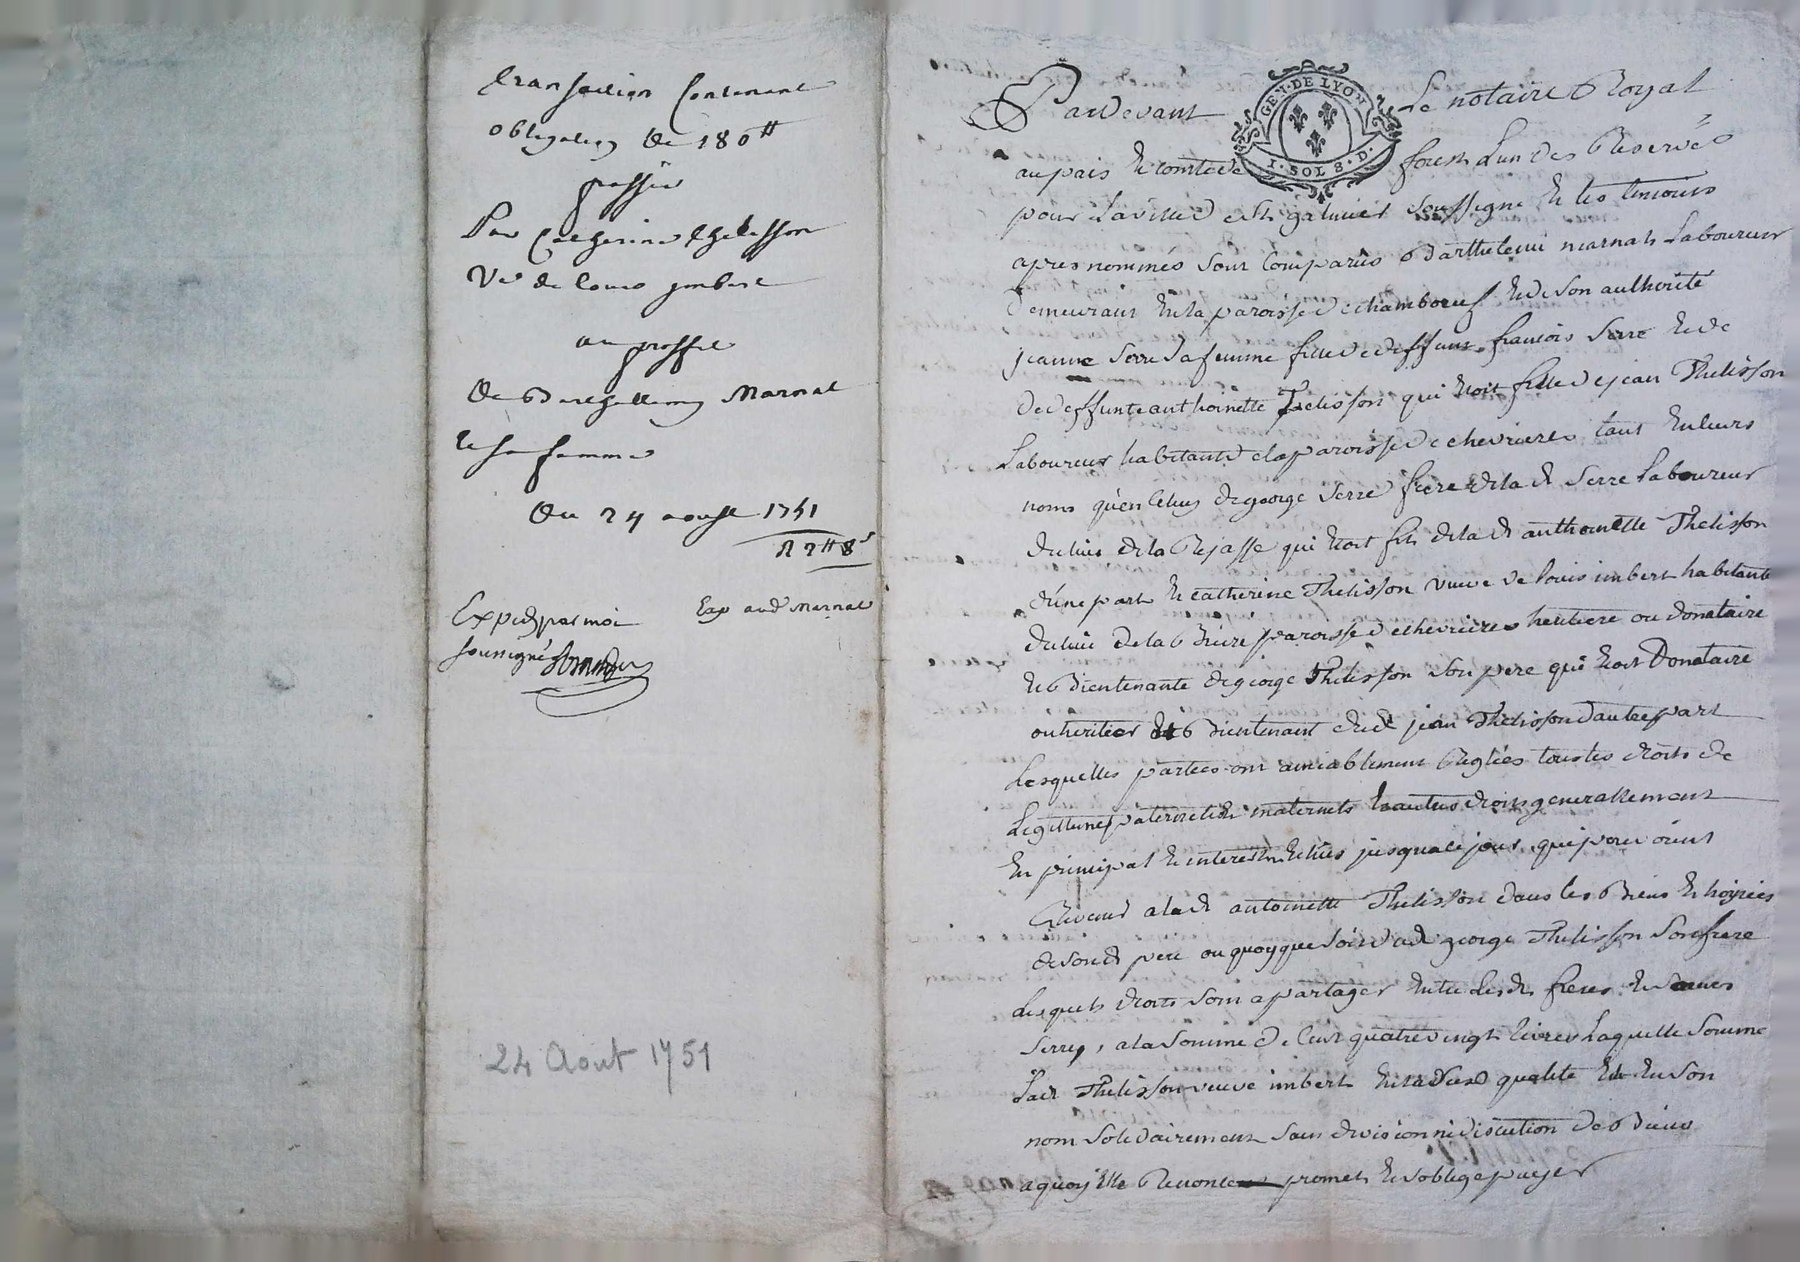 transaction Contenant
obligation de 180 ₶
passée
Par Catherine thelisson
Ve de louis imbert
au proffit
de Barthellemy Marnat
et sa femme
du 24 aoust 1751
R 2₶ 8s
Exped par moi
soussigné
Exp aud Marnat
24 Aout 1751
GEN. DE LYON
I. SOL 8. D.
Pardevant Le notaire Royal
au pais et comté de forests L'un des Reservés
pour La ville de st galmier soussigné et les temoins
apres nommés sont Comparûs Barthelemi marnat Laboureur
demeurant en la paroisse de chamboeuf et de son authorité
jeanne Serre sa femme fille de deffunt francois Serre et de
de deffunte anthoinette Thelisson qui étoit fille de jean Thelisson
Laboureur habitant de la paroisse de chevrieres tant en leurs
noms qu'en celuy de george Serre frere de la de Serre laboureur
du lieu de la Rejasse qui étoit fils de la de anthoinette Thelisson
d'une part et catherine Thelisson veuve de louis imbert habitante
du lieu de la paroisse de chevrieres heritiere ou donataire
et Bientenante de george Thelisson son pere qui étoit Donataire
ou heritier et Bientenant dud jean Thelisson d'autre part
Lesquelles parties ont amiablement Reglées tous les droits de
Legitime paternels et maternels et autres droits generallement
En principal et interest jusqua ce jour, qui pouvoient
a lad antoinette Thelisson dans les Biens et hoiries
de sond pere ou quoyque soit dud george Thelisson son frere
Lesquels droits sont a partager entre lesds freres et soeurs
Serre, a la somme de Cent quatre vingt livres Laquelle Somme
Lad Thelisson veuve imbert en sa qualité et en son
nom solidairement sans division ni discution de Biens
a quoy elle Renonce promet et s'oblige payer